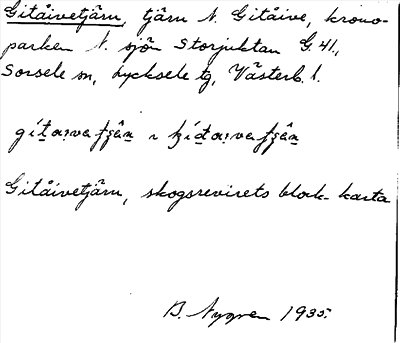 Gitåivetjärn, tjärn N. Gitåive, krono-
parken N. sjön Storjuktan G.41,
Sorsele sn, Lycksele tg, Västerb. l.
Gitåivetjärn, skogsrevirets block-karta
B. Nygren 1935.